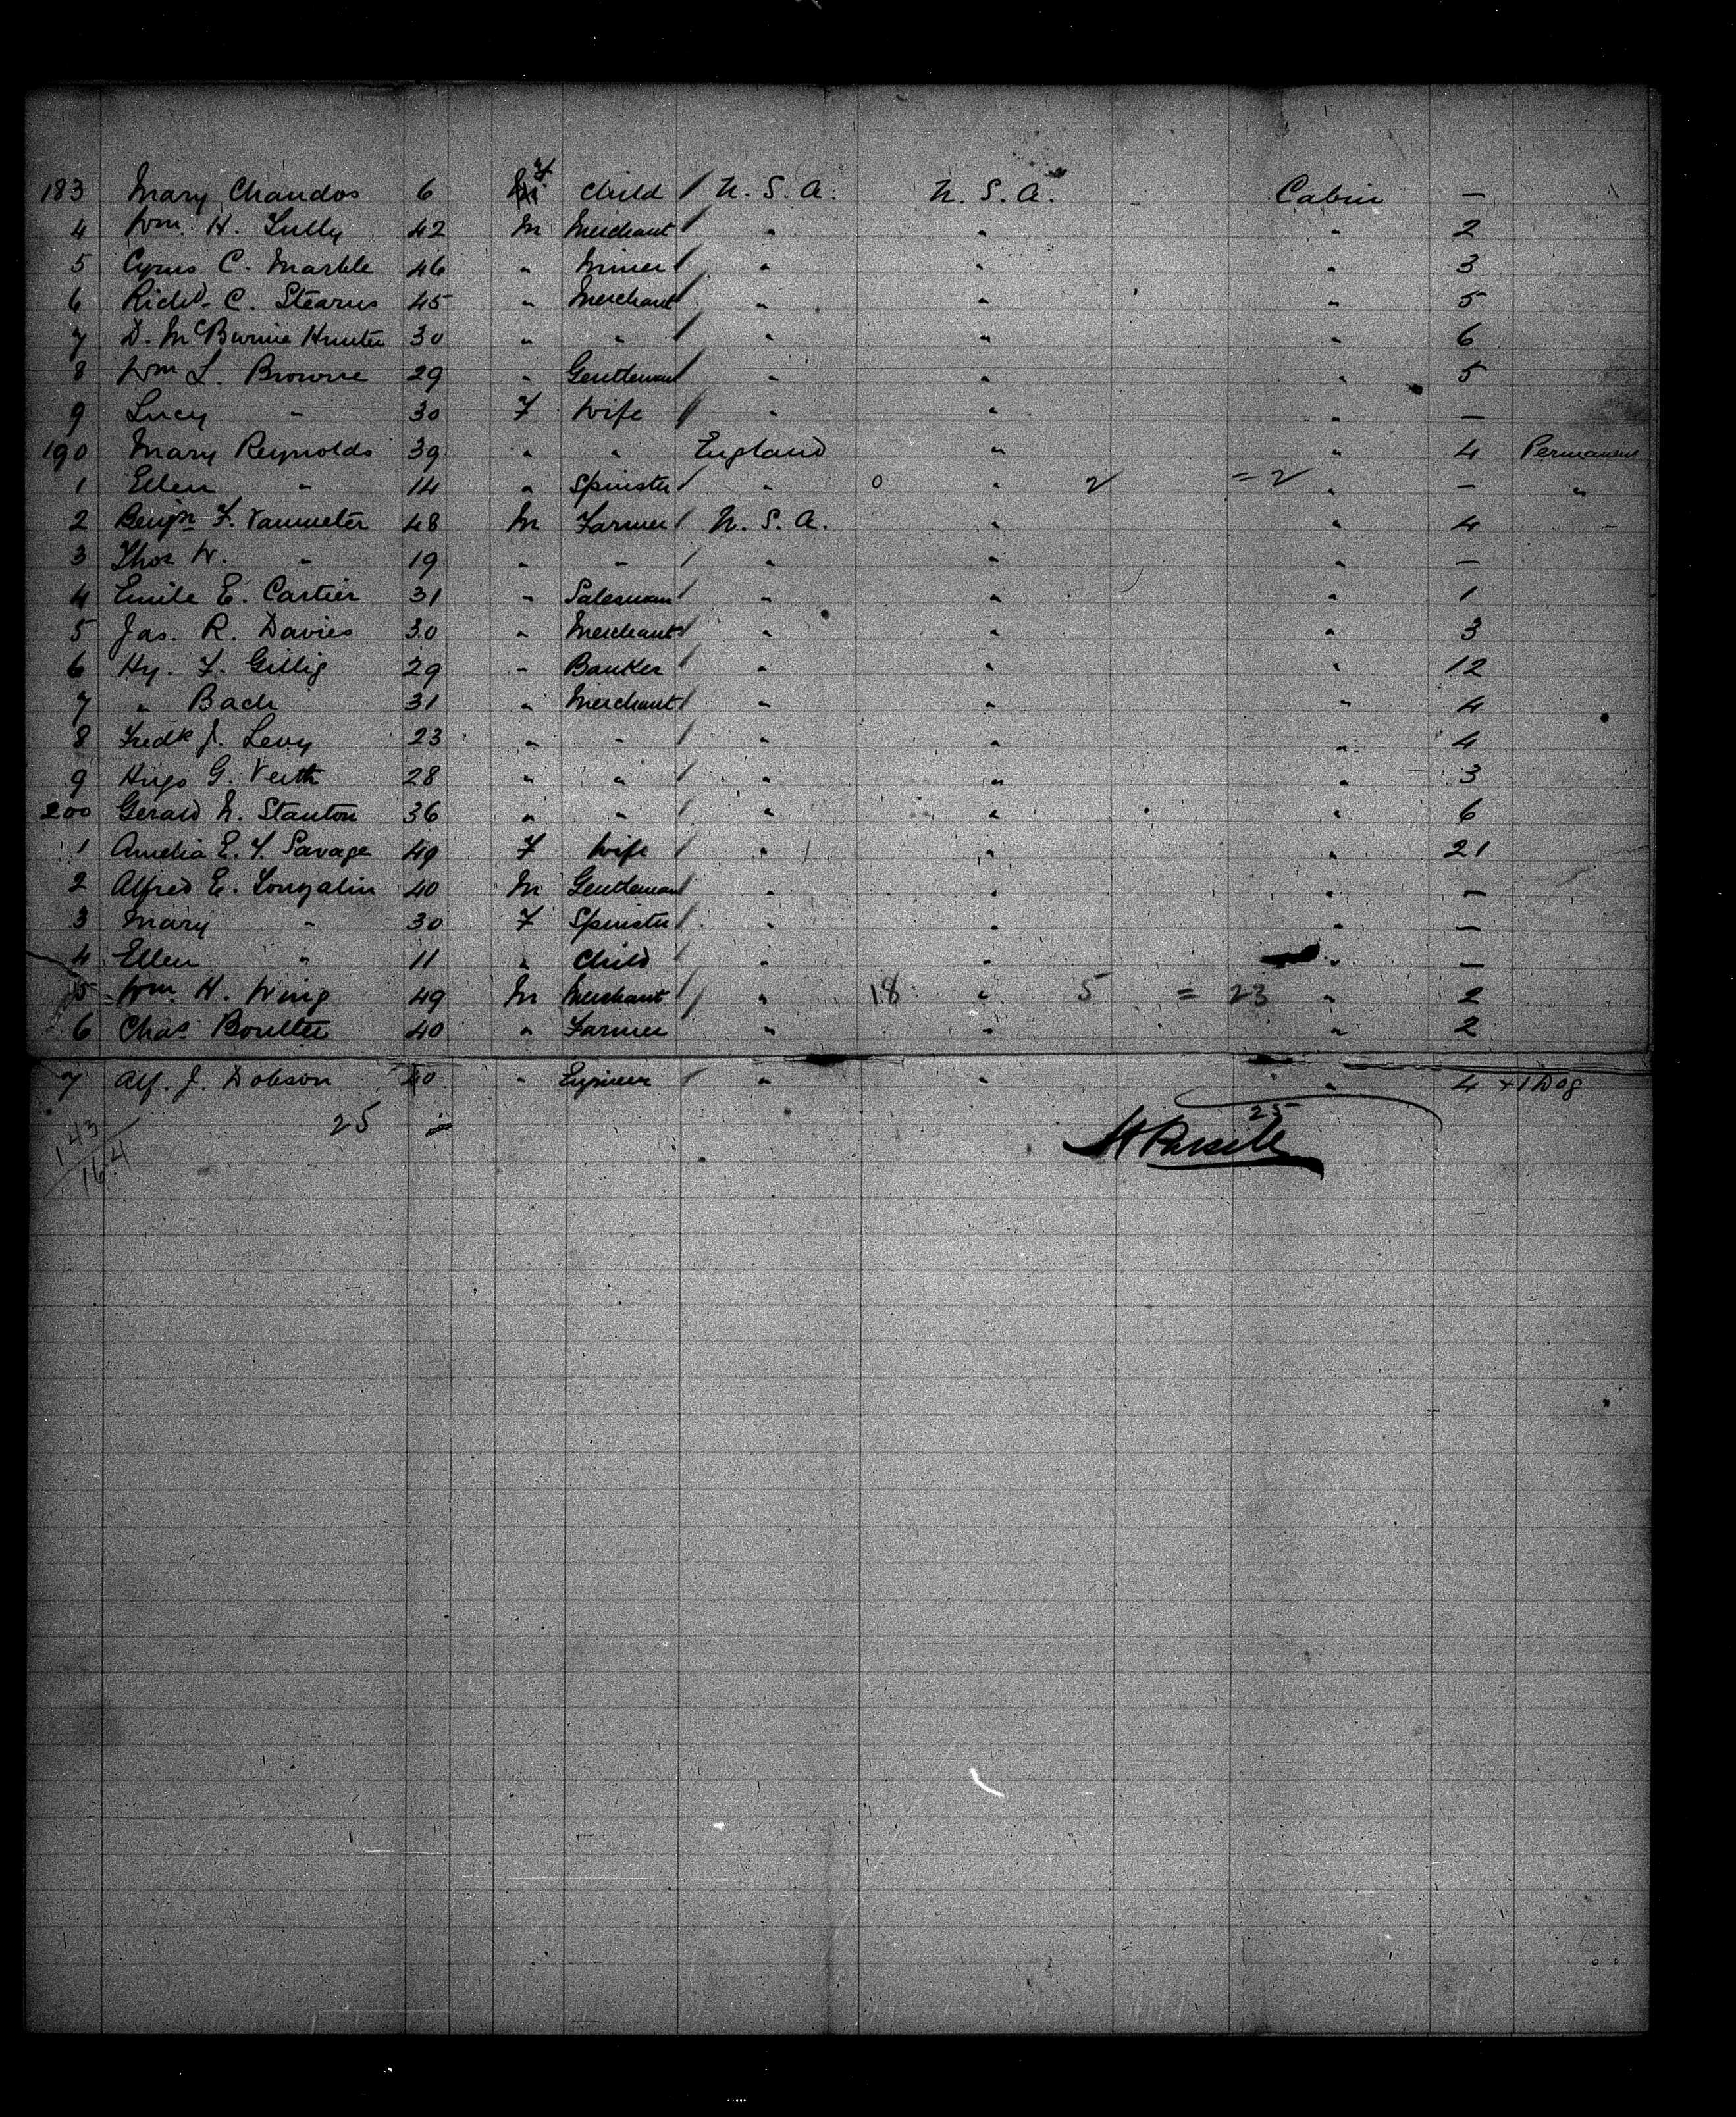 183 Mary Chandos 6 M F Child / U. S. A. U. S. A. Cabin —
4 Wm. H. Tully 42 M Merchant / " " " 2
5 Cyrus C. Marble 46 " Miner / " " " 3
6 Richd. C. Stearns 45 " Merchant / " " " 5
7 D. McBurnie Hunter 30 " " / " " " 6
8 Wm L. Browne 29 " Gentleman / " " " 5
9 Lucy " 30 F Wife / " " " —
190 Mary Reynolds 39 " " England " " 4 Permanent
1 Ellen " 14 " Spinster / " 0 " 2 = 2 " — "
2 Benjn F. Vanmeter 48 M Farmer / U. S. A. " " 4 "
3 Thos W. " 19 " " / " " " —
4 Emile E. Cartier 31 " Salesman / " " " 1
5 Jas. R. Davies 30 " Merchant / " " " 3
6 Hy. F. Gillig 29 " Banker / " " " 12
7 " Bach 31 " Merchant / " " " 4
8 Fredk J. Levy 23 " " / " " " 4
9 Hugo G. Veith 28 " " / " " " 3
200 Gerald N. Stanton 36 " " / " " " 6
1 Amelia E. Y. Savage 49 F Wife / " " " 21
2 Alfred E. 40 M Gentleman / " " " —
3 Mary " 30 F Spinster / " " " —
4 Ellen " 11 " Child / " " " —
5 Wm. H. Wing 49 M Merchant / " 18 " 5 = 23 " 2
6 Chas Boulter 40 " Farmer " " " 2
7 Alf. J. Dobson 40 " Engineer / " " " 4 + 1 Dog
25 25
143
164